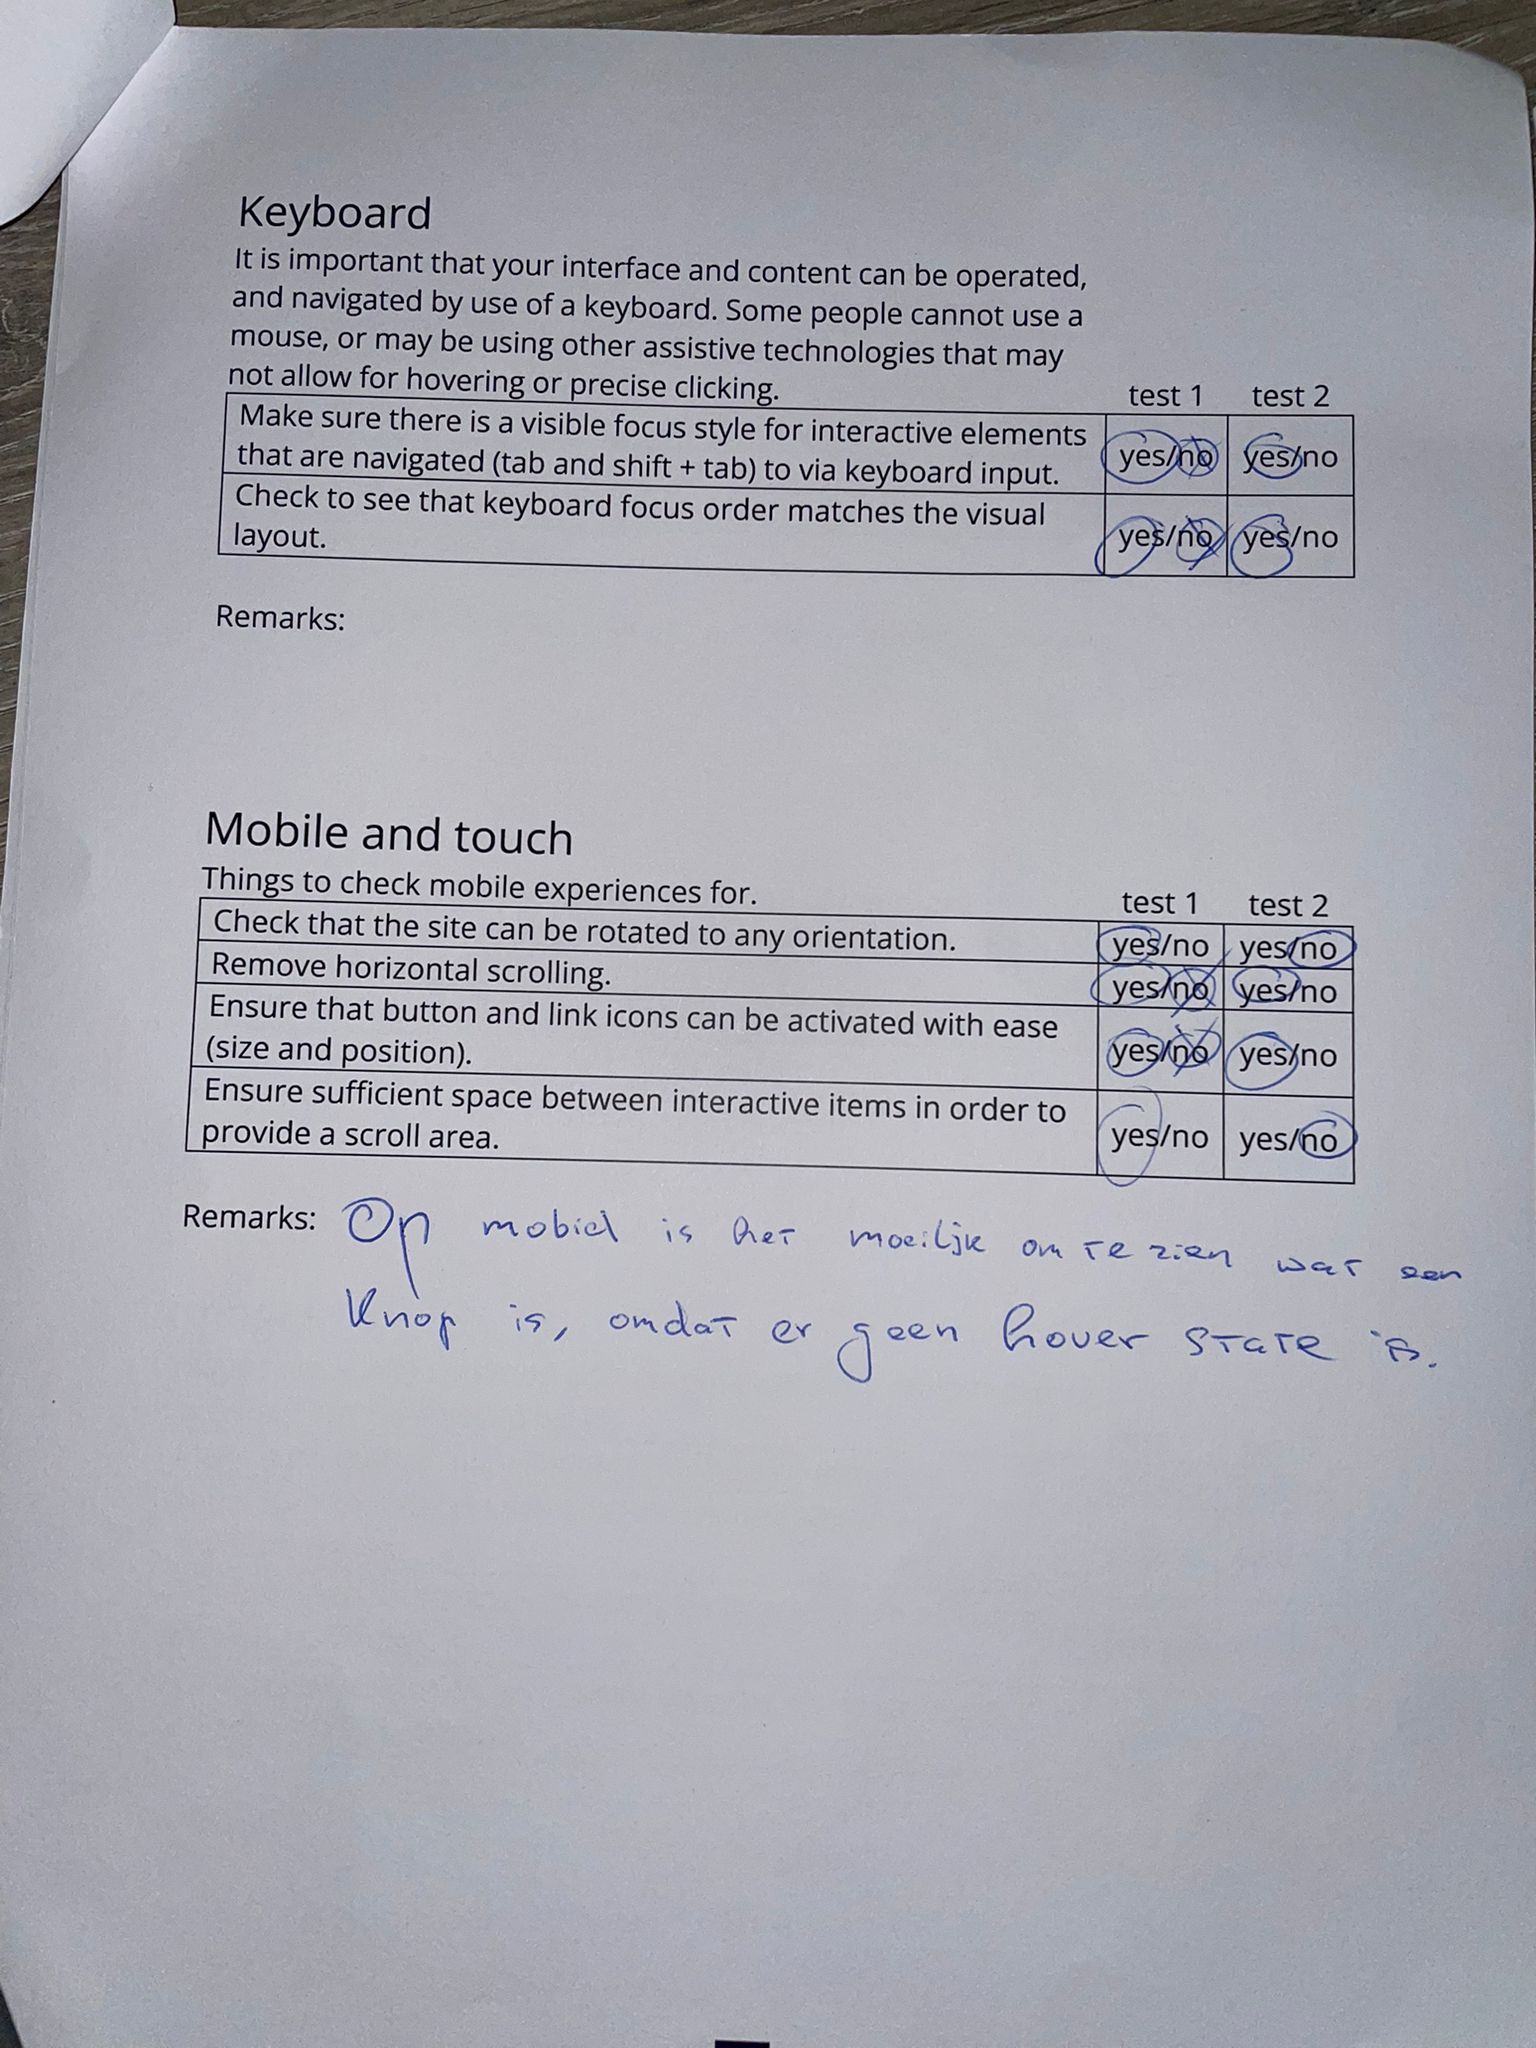 Keyboard
It is important that your interface and content can be operated,
and navigated by use of a keyboard. Some people cannot use a
mouse, or may be using other assistive technologies that may
not allow for hovering or precise clicking. test 1 test 2
Make sure there is a visible focus style for interactive elements
that are navigated (tab and shift + tab) to via keyboard input. yes/no yes/no
Check to see that keyboard focus order matches the visual
layout. yes/no yes/no
Remarks:
Mobile and touch
Things to check mobile experiences for. test 1 test 2
Check that the site can be rotated to any orientation. yes/no yes/no
Remove horizontal scrolling. yes/no yes/no
Ensure that button and link icons can be activated with ease
(size and position). yes/no yes/no
Ensure sufficient space between interactive items in order to
provide a scroll area. yes/no yes/no
Remarks: Op mobiel is het moeilijk om te zien wat een
Knop is, omdat er geen hover state is.